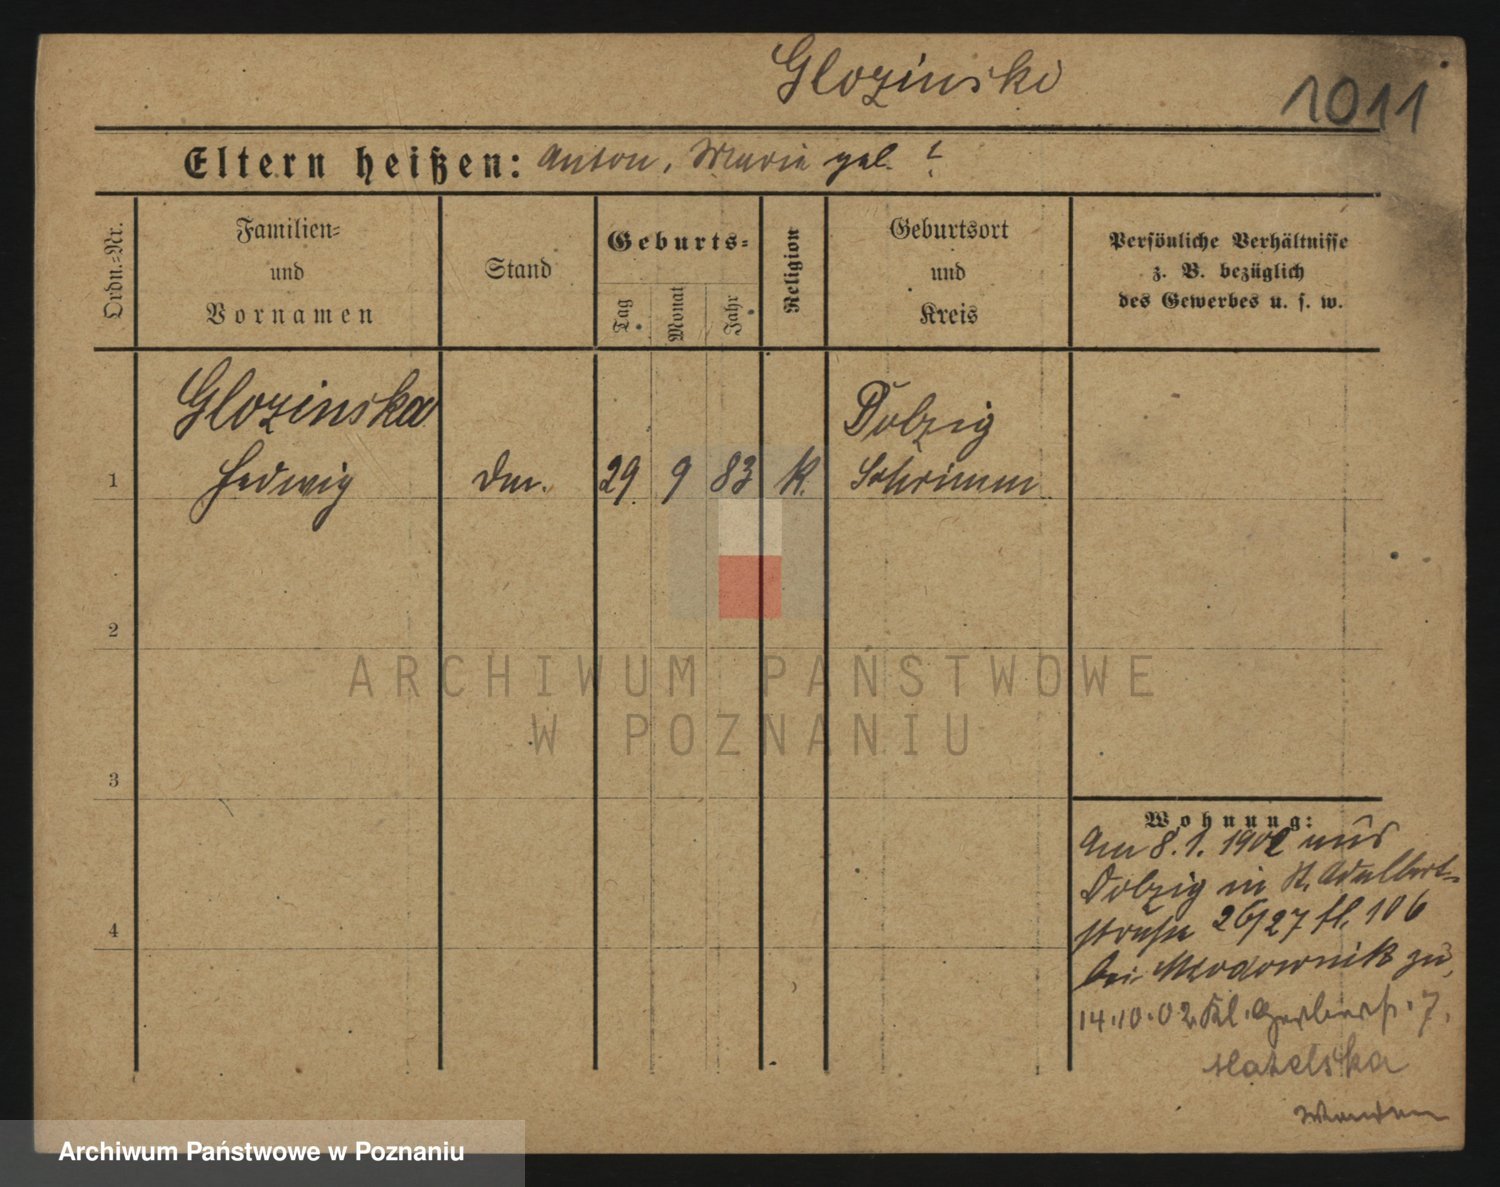 Glozinski
1011
Eltern heißen: Anton, Marie geb. ?
Ordn.-Nr.
Familien-
und
Vornamen
Stand
Geburts-
Tag
Monat
Jahr
Religion
Geburtsort
und
Kreis
Persönliche Verhältnisse
z. B. bezüglich
des Gewerbes u. s. w.
Glozinska
Dolzig
1 Hedwig 29 9 83 K. Schrimm
2
3
4
Wohnung:
Am 8. 1. 1902 aus
Dolzig in St. Adalbert-
straße 26/27 106
bei Miodownik zu,
14.10.02 Kl. Gerberstr. 7.
ARCHIWUM PAŃSTWOWE
W POZNANIU
Archiwum Państwowe w Poznaniu